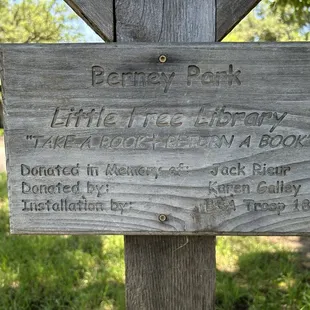 Berney Park
Little Free Library
"TAKE A BOOK • RETURN A BOOK"
Donated in Memory of: Jack Rieur
Donated by: Karen Galley
Installation by: BSA Troop 18